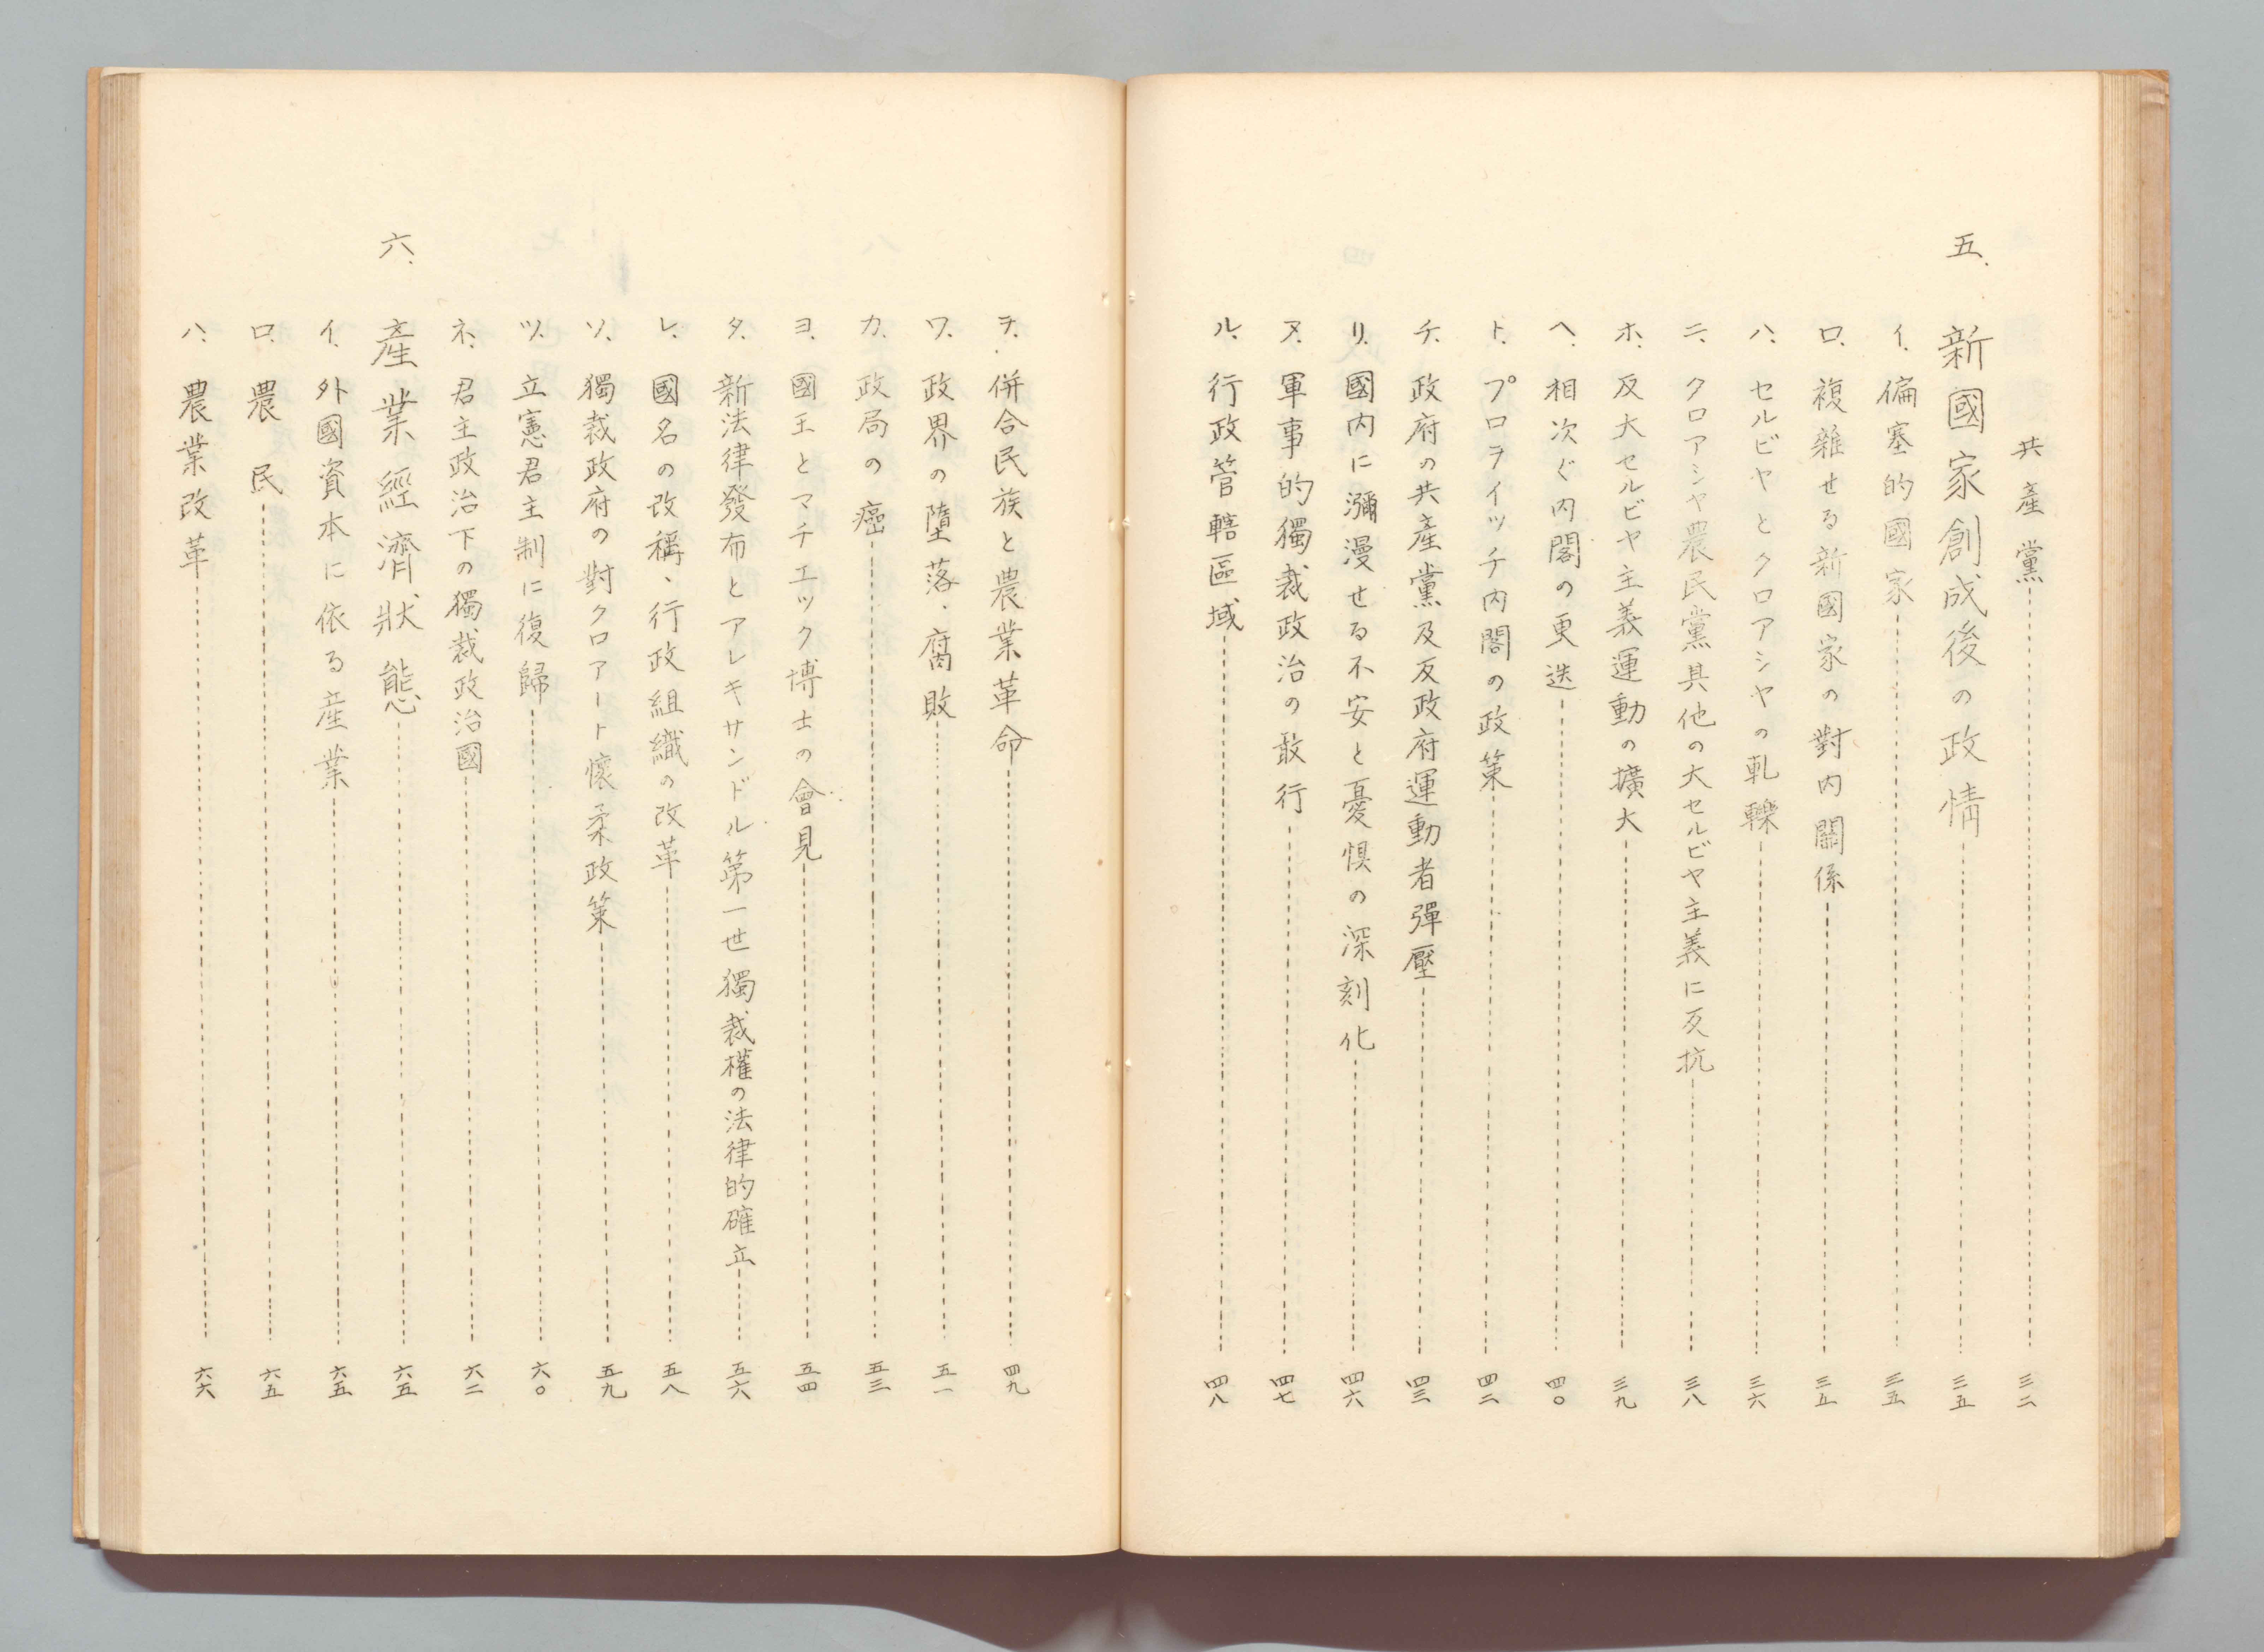 共産黨 三二
五、新國家創成後の政情 三五
イ、偏塞的國家 三五
ロ、複雜せる新國家の對内關係 三五
ハ、セルビヤとクロアシヤの軋轢 三六
ニ、クロアシヤ農民黨其他の大セルビヤ主義に反抗 三八
ホ、反大セルビヤ主義運動の擴大 三九
ヘ、相次ぐ内閣の更迭 四〇
ト、プロライッチ内閣の政策 四二
チ、政府の共産黨及反政府運動者彈壓 四三
リ、國内に瀰漫せる不安と憂惧の深刻化 四六
ヌ、軍事的獨裁政治の敢行 四七
ル、行政管轄區域 四八
ヲ、併合民族と農業革命 四九
ワ、政界の墮落、腐敗 五一
カ、政局の癌 五三
ヨ、國王とマチエック博士の會見 五四
タ、新法律發布とアレキサンドル第一世獨裁權の法律的確立 五六
レ、國名の改稱、行政組織の改革 五八
ソ、獨裁政府の對クロアート懷柔政策 五九
ツ、立憲君主制に復歸 六〇
ネ、君主政治下の獨裁政治國 六二
六、産業經濟狀態 六五
イ、外國資本に依る産業 六五
ロ、農民 六五
ハ、農業改革 六六